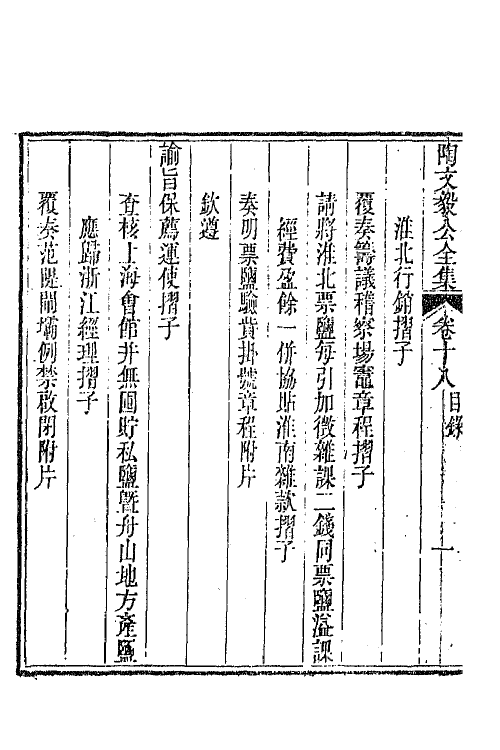 陶文毅公全集 卷十八 目錄 一
淮北行銷摺子
覆奏籌議稽察場竈章程摺子
請將淮北票鹽每引加徵雜課二錢同票鹽溢課
經費盈餘一併協貼淮南雜款摺子
奏明票鹽驗貲掛號章程附片
欽遵
諭旨保薦運使摺子
查核上海會館并無囤貯私鹽曁舟山地方產鹽
應歸浙江經理摺子
覆奏范隄閘壩例禁啟閉附片